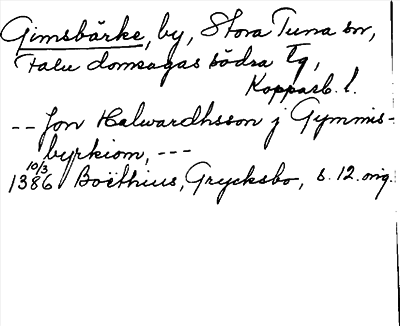 Gimsbärke, by, Stora Tuna sn,
Falu domsagas södra tg,
Kopparb. l.
-- Jon Halwardhsson j Gymmis-
byrkiom, ---
10/3
1386 Boëthius, Grycksbo, s. 12. orig.